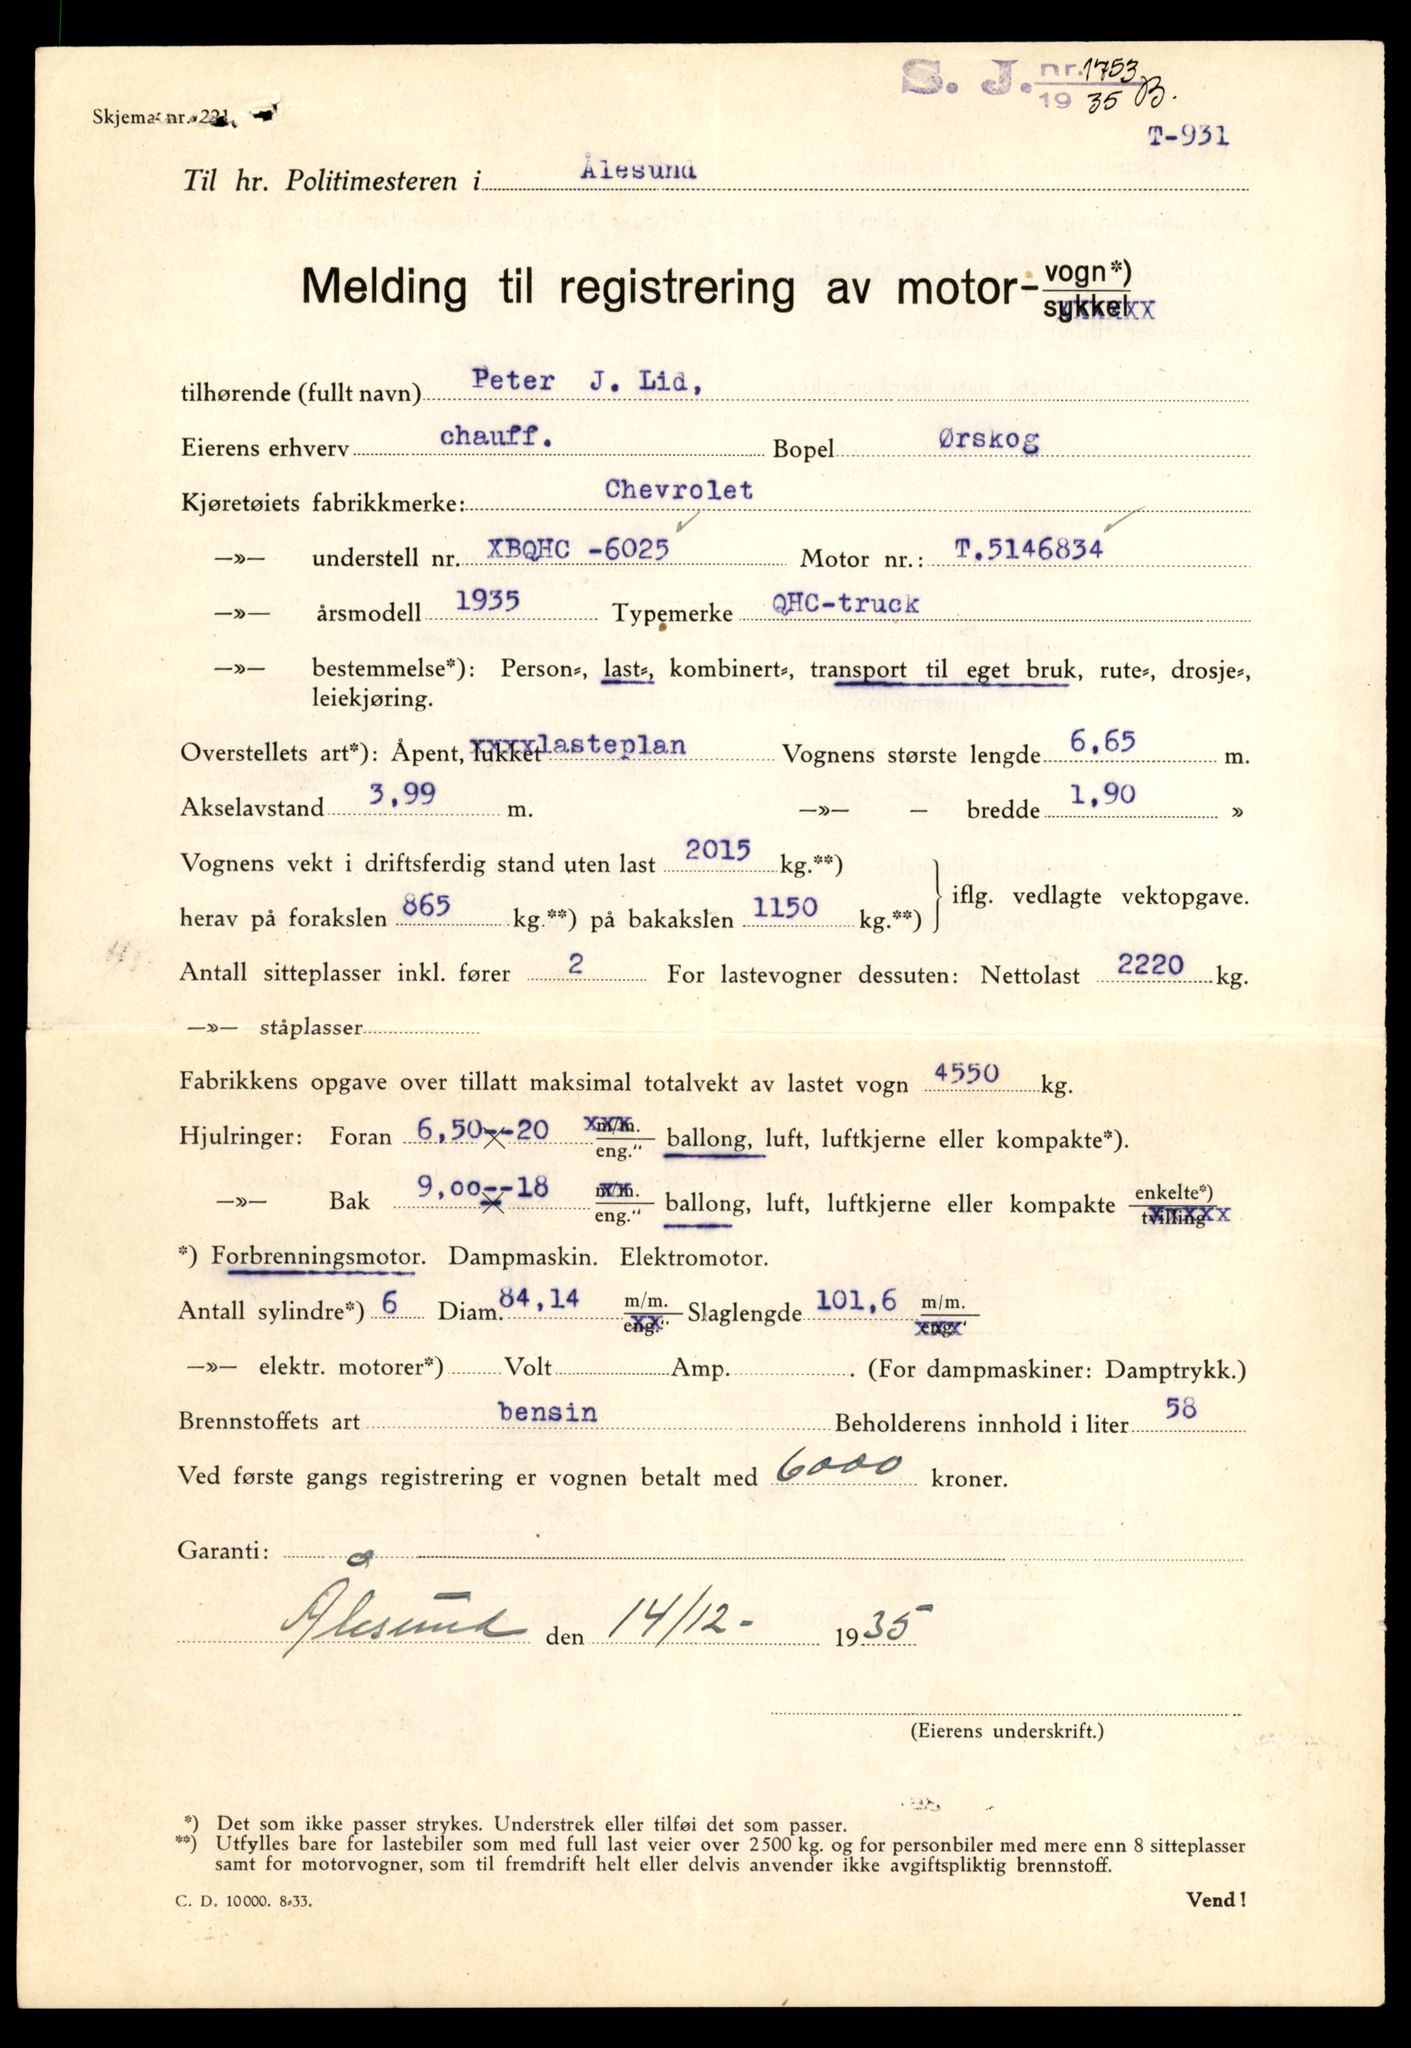 S. J. nr. 1753
19 35 B.
Skjema nr. 221.
T-931
Til hr. Politimesteren i Ålesund
Melding til registrering av motor- vogn*)
sykkel
tilhørende (fullt navn) Peter J. Lid,
Eierens erhverv chauff. Bopel Ørskog
Kjøretøiets fabrikkmerke: Chevrolet
—»— understell nr. XBQHC -6025 Motor nr.: T.5146834
—»— årsmodell 1935 Typemerke QHC-truck
—»— bestemmelse*): Person-, last-, kombinert-, transport til eget bruk, rute-, drosje-,
leiekjøring.
Overstellets art*): Åpent, lukket lasteplan Vognens største lengde 6,65 m.
Akselavstand 3,99 m. —»— — bredde 1,90 »
Vognens vekt i driftsferdig stand uten last 2015 kg.**)
herav på forakslen 865 kg.**) på bakakslen 1150 kg.**) iflg. vedlagte vektopgave.
Antall sitteplasser inkl. fører 2 For lastevogner dessuten: Nettolast 2220 kg.
—»— ståplasser
Fabrikkens opgave over tillatt maksimal totalvekt av lastet vogn 4550 kg.
Hjulringer: Foran 6,50--20 m/m. eng." ballong, luft, luftkjerne eller kompakte*).
—»— Bak 9,00--18 m/m. eng." ballong, luft, luftkjerne eller kompakte enkelte*) tvilling
*) Forbrenningsmotor. Dampmaskin. Elektromotor.
Antall sylindre*) 6 Diam. 84,14 m/m. eng." Slaglengde 101,6 m/m. eng."
—»— elektr. motorer*) Volt Amp. . (For dampmaskiner: Damptrykk.)
Brennstoffets art bensin Beholderens innhold i liter 58
Ved første gangs registrering er vognen betalt med 6000 kroner.
Garanti:
Ålesund den 14/12- 1935
(Eierens underskrift.)
*) Det som ikke passer strykes. Understrek eller tilføi det som passer.
**) Utfylles bare for lastebiler som med full last veier over 2500 kg. og for personbiler med mere enn 8 sitteplasser
samt for motorvogner, som til fremdrift helt eller delvis anvender ikke avgiftspliktig brennstoff.
C. D. 10000. 8-33.
Vend!